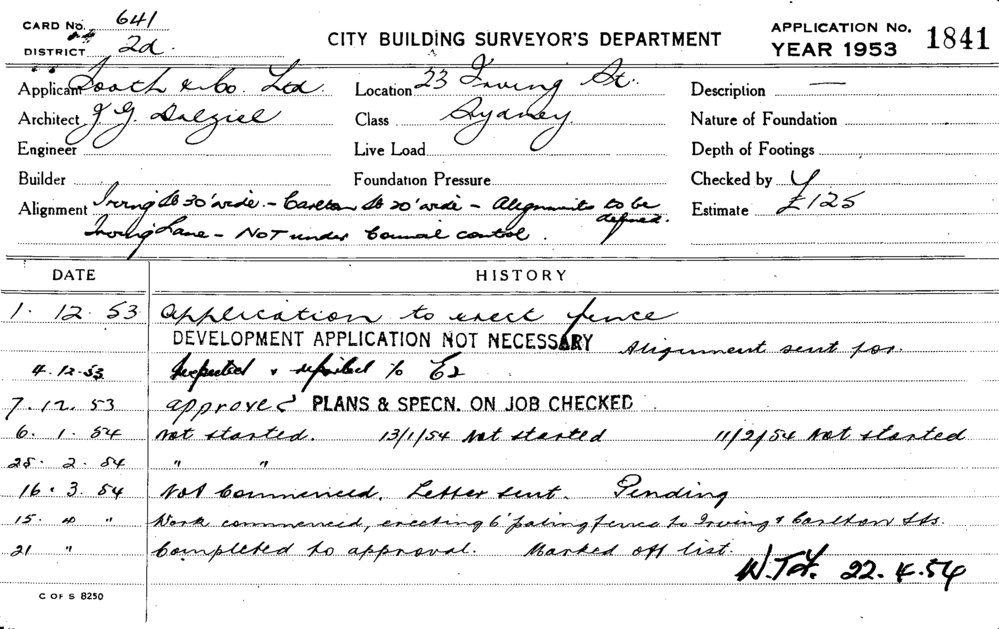 CARD No. 641
DISTRICT 2d.
CITY BUILDING SURVEYOR'S DEPARTMENT
APPLICATION No. 1841
YEAR 1953
Applicant Tooth & Co. Ltd. Location 23 Irving St. Description —
Architect J G Dalziel Class Sydney Nature of Foundation
Engineer Live Load Depth of Footings
Builder Foundation Pressure Checked by
Alignment Irving St 30' wide. - Carlton St 20' wide - Alignments to be defined. Estimate £125
Irving Lane - NOT under Council control.
DATE HISTORY
1. 12. 53 Application to erect fence
DEVELOPMENT APPLICATION NOT NECESSARY Alignment sent for.
4.12.53 Inspected & reported
7.12.53 approved PLANS & SPECN. ON JOB CHECKED
6. 1. 54 Not started. 13/1/54 Not started 11/2/54 Not started
25. 2. 54 " "
16. 3. 54 Not Commenced. Letter sent. Pending
15. 4 " Work commenced, erecting 6' paling fence to Irving & Carlton Sts.
21 " Completed to approval. Marked off list.
22.4.54
C OF S 8250